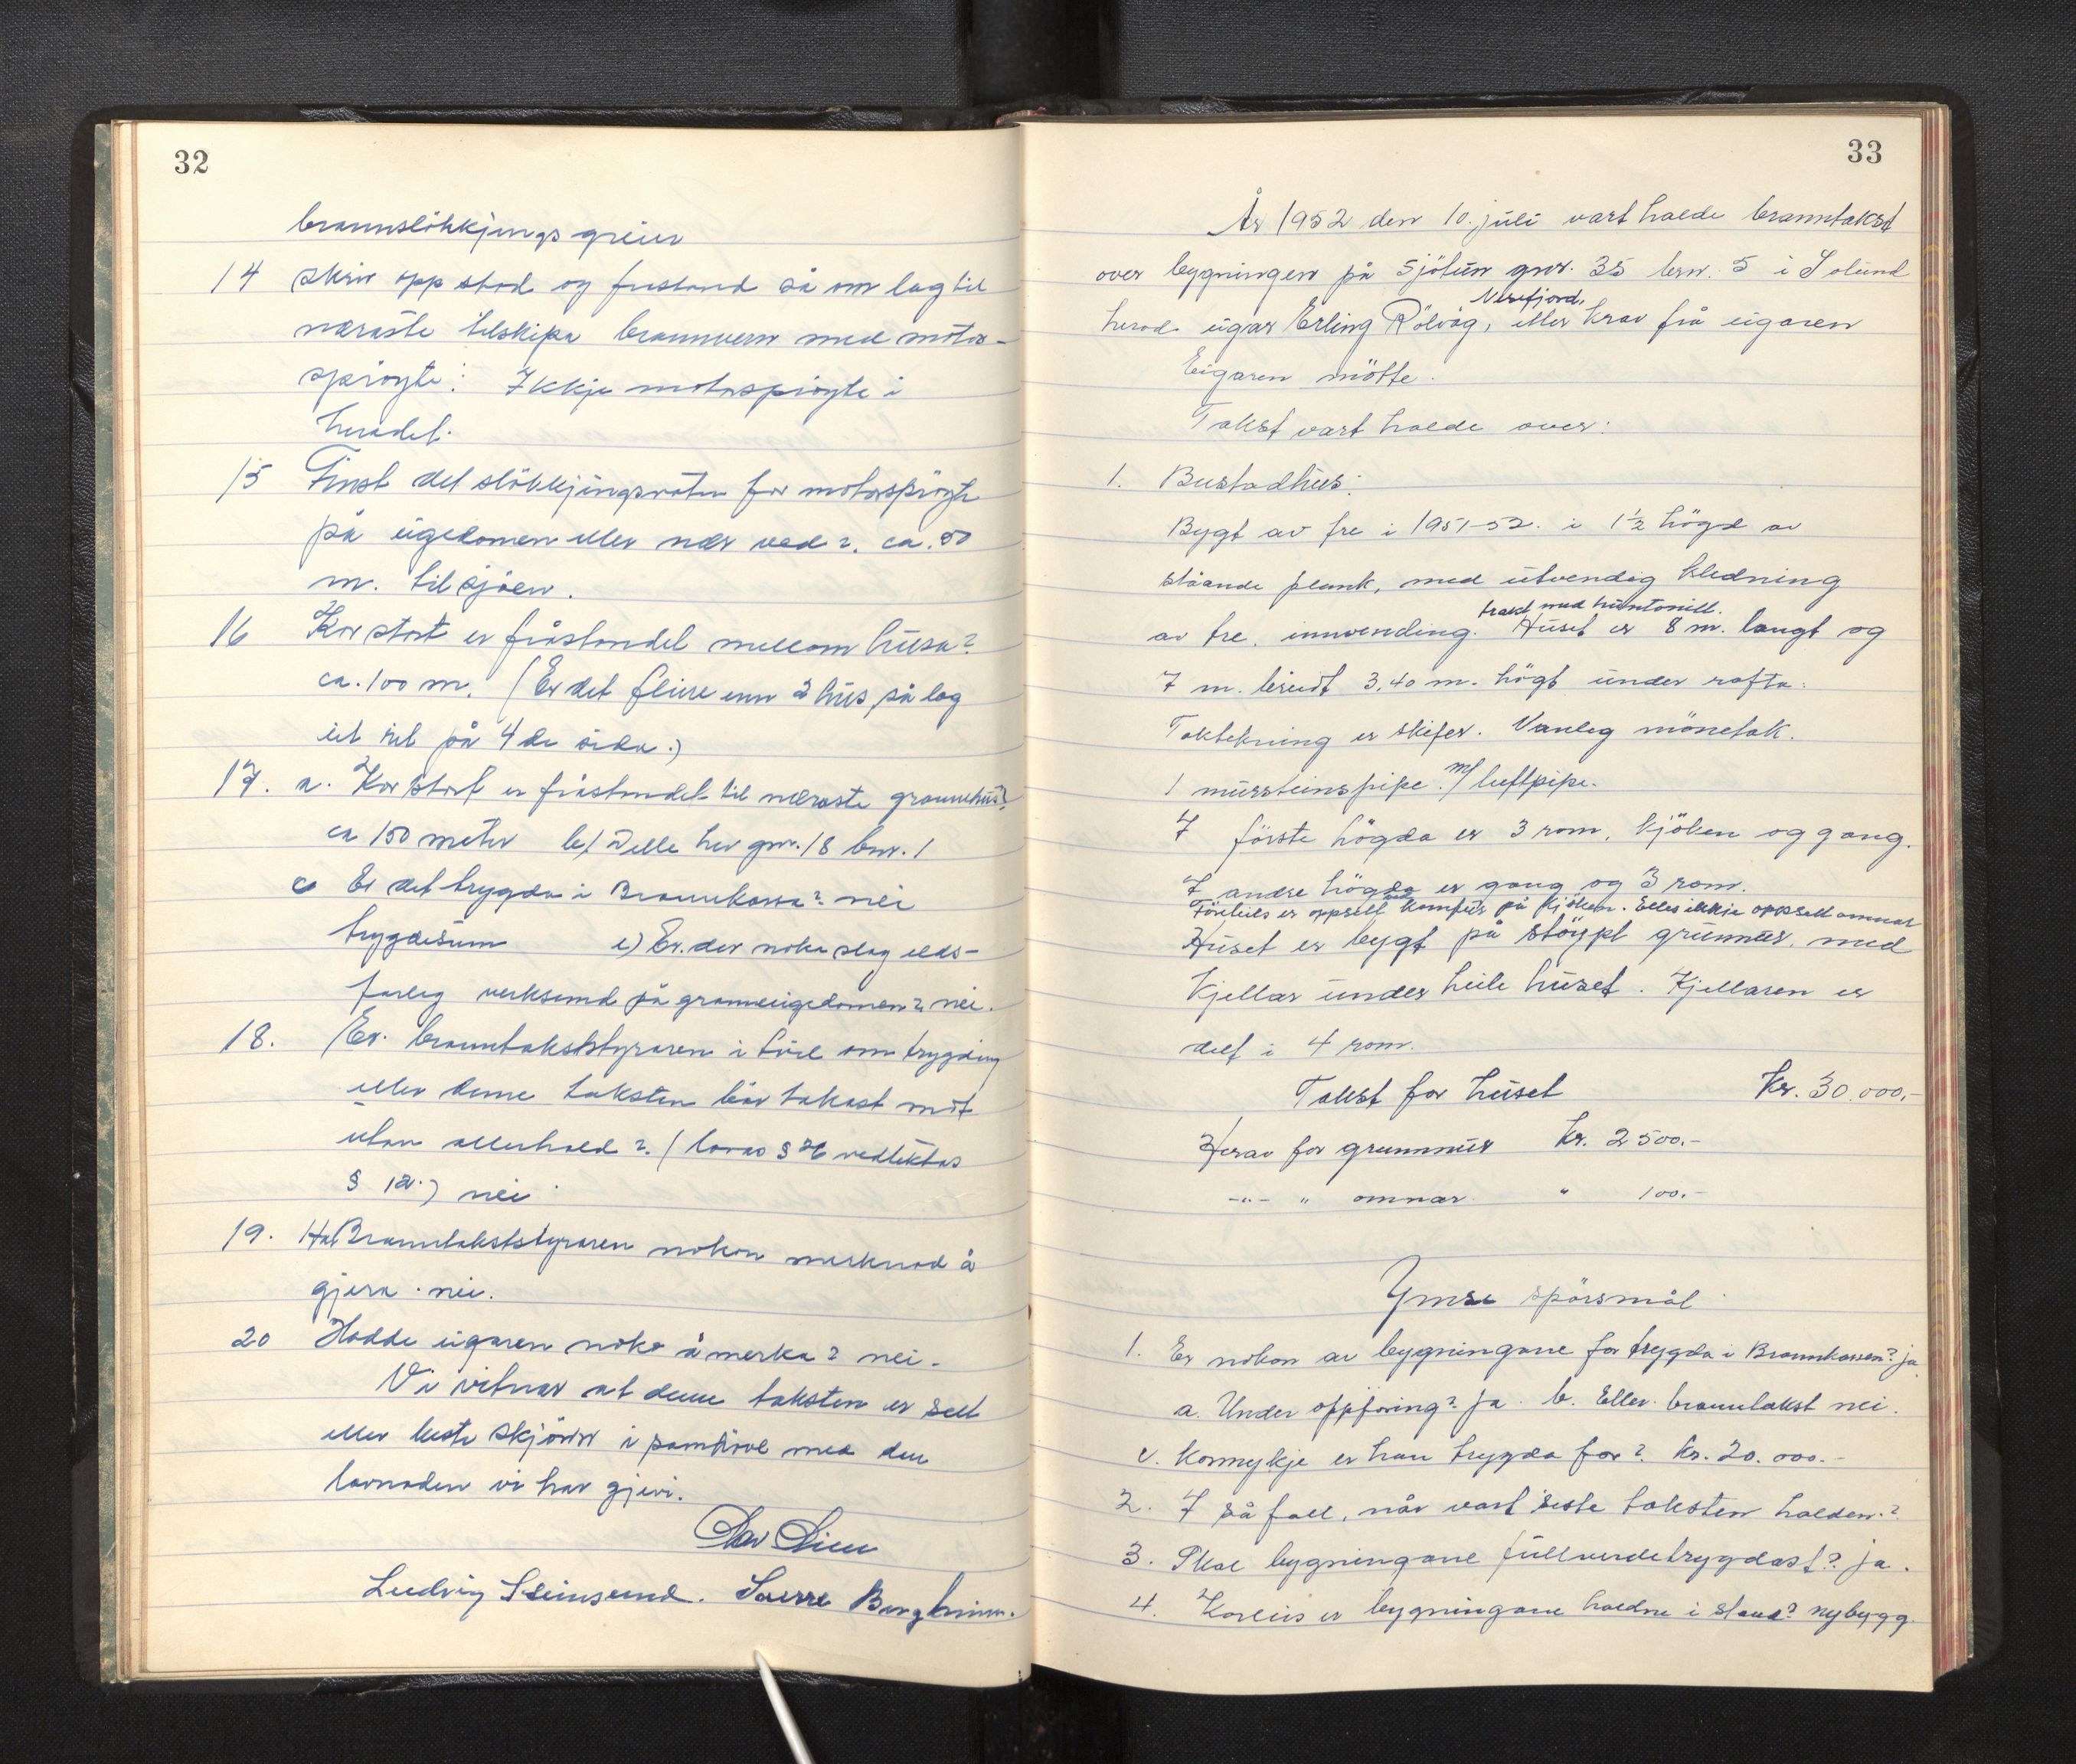 32
brannslökkjings greier
14 Skriv opp stad og frastand så om lag til
næraste tilskipa brannvern med motor-
spröyte: Ikkje motorspröyte i
heradet.
15 Finst det slökkjingsvatn for motorspröyte
på eigedomen eller nær ved? ca. 50
m. til sjöen.
16 Kor stort er fråstandet mellom husa?
ca. 100 m. (Er det fleire enn 2 hus, så lag
eit rit på 4de sida.)
17. a. Kor stort er fråstandet til næraste grannehus?
ca 150 meter b/ Dette hev gnr. 18 bnr. 1
c Er det trygda i Brannkassa? nei
trygdesum e) Er der noko slag elds-
farleg verksemd på granneeigedomen? nei.
18. Er branntakststyraren i tvil om trygding
eller denne taksten bör takast mot
utan atterhald? (lovas § 26 vedtektas
§ 12.) nei
19. Hat Branntakststyraren nokon merknad å
gjera. nei.
20 Hadde eigaren noko å merka? nei.
Vi vitnar at denne taksten er sett
etter beste skjönn i samhöve med den
lovnaden vi har gjevi.
Ludvig Steinsund. Sverre Bergheim.
33
År 1952 den 10. juli vart halde branntakst
over bygningen på Sjötun gnr. 35 brn. 5 i Solund
Nesefjord.
herad eigar Erling Rölvåg, etter krav frå eigaren
Eigaren mötte.
Takst vart halde over:
1. Bustadhus:
Bygt av tre i 1951-52. i 1½ högd av
ståande plank, med utvendig kledning
trekt med huntonitt.
av tre. innvending. Huset er 8 m. langt og
7 m. breidt 3,40 m. högt under rafta.
Taktekning er skifer. Vanleg mönetak.
1 mursteinspipe. m/ luftpipe.
I förste högda er 3 rom, kjöken og gang.
I andre högda er gang og 3 rom.
Förebils er oppsett komfur på kjöken. Elles ikkje oppsett omnar
Huset er bygt på stöypt grunnur, med
kjellar under heile huset. Kjellaren er
delt i 4 rom.
Takst for huset Kr. 30.000,-
Herav for grunnmur kr. 2500.-
-"- " omnar " 100.-
Ymse spörsmål
1. Er nokon av bygningane for trygda i Brannkassen? ja
a. Under oppföring? ja. b. Etter branntakst nei.
c. Kormykje er han trygda for? Kr. 20.000.-
2. I så fall, når vart siste taksten halden.?
3. Skal bygningane fullverdetrygdast? ja.
4. Korleis er bygningane haldne i stand? nybygg